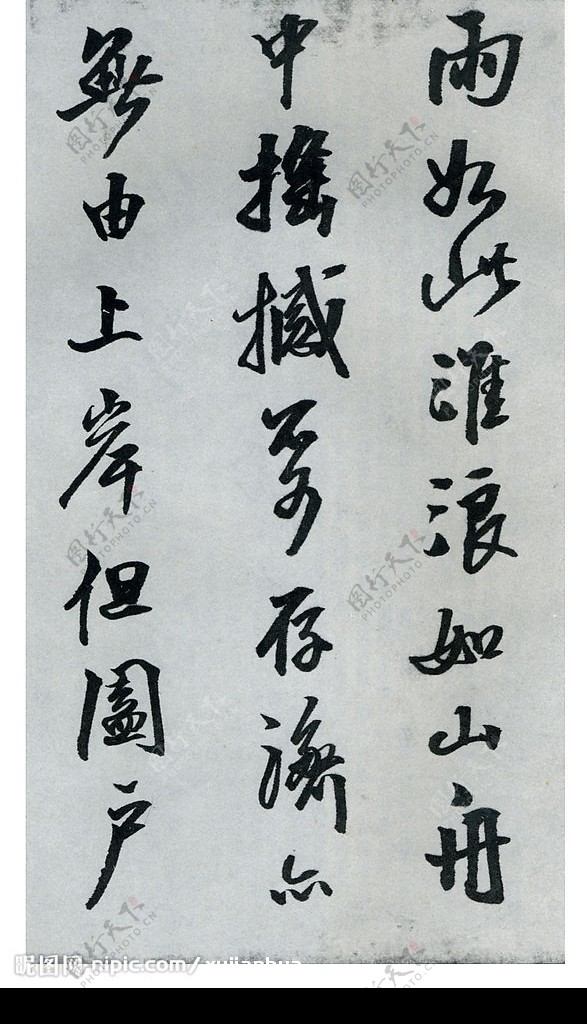 雨如此淮浪如山舟
中搖撼不可存濟亦
無由上岸但闔戶
图行天下
PHOTOPHOTO.CN
昵图网 nipic.com/xujianhua